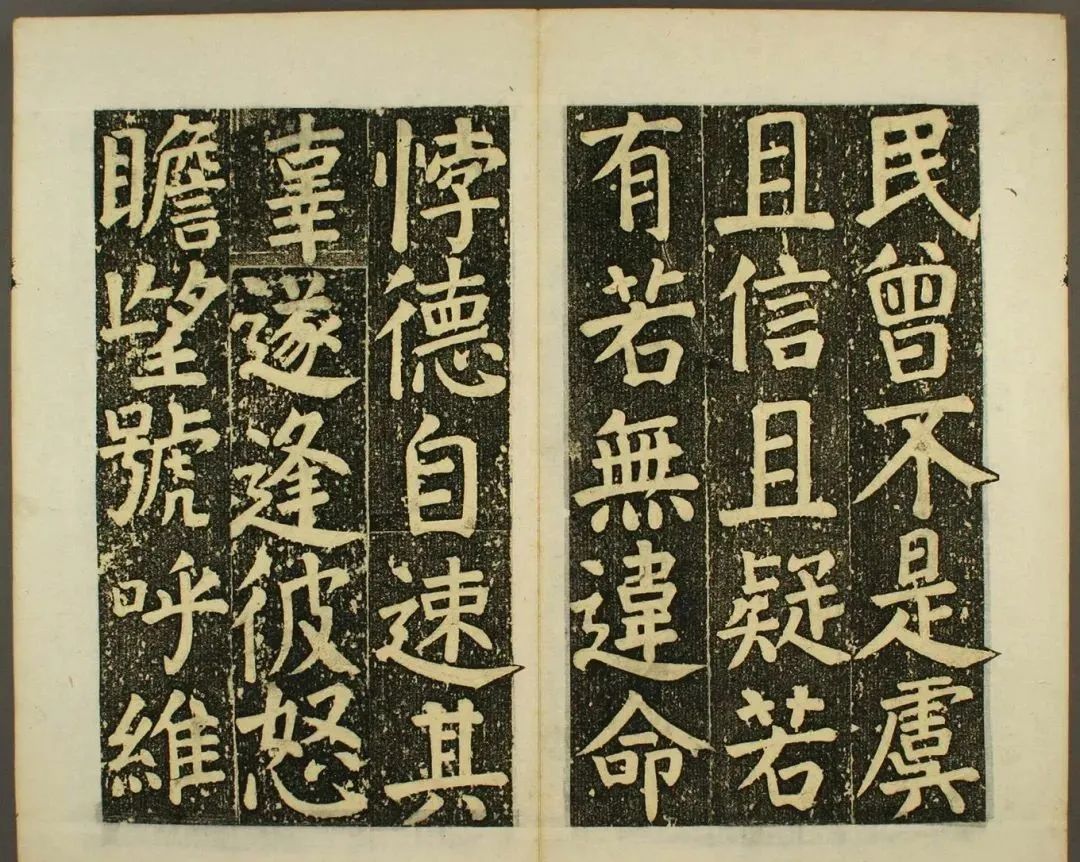 民曾不是虞
且信且疑若
有若無違命
悖德自速其
辜遂逢彼怒
瞻望號呼維